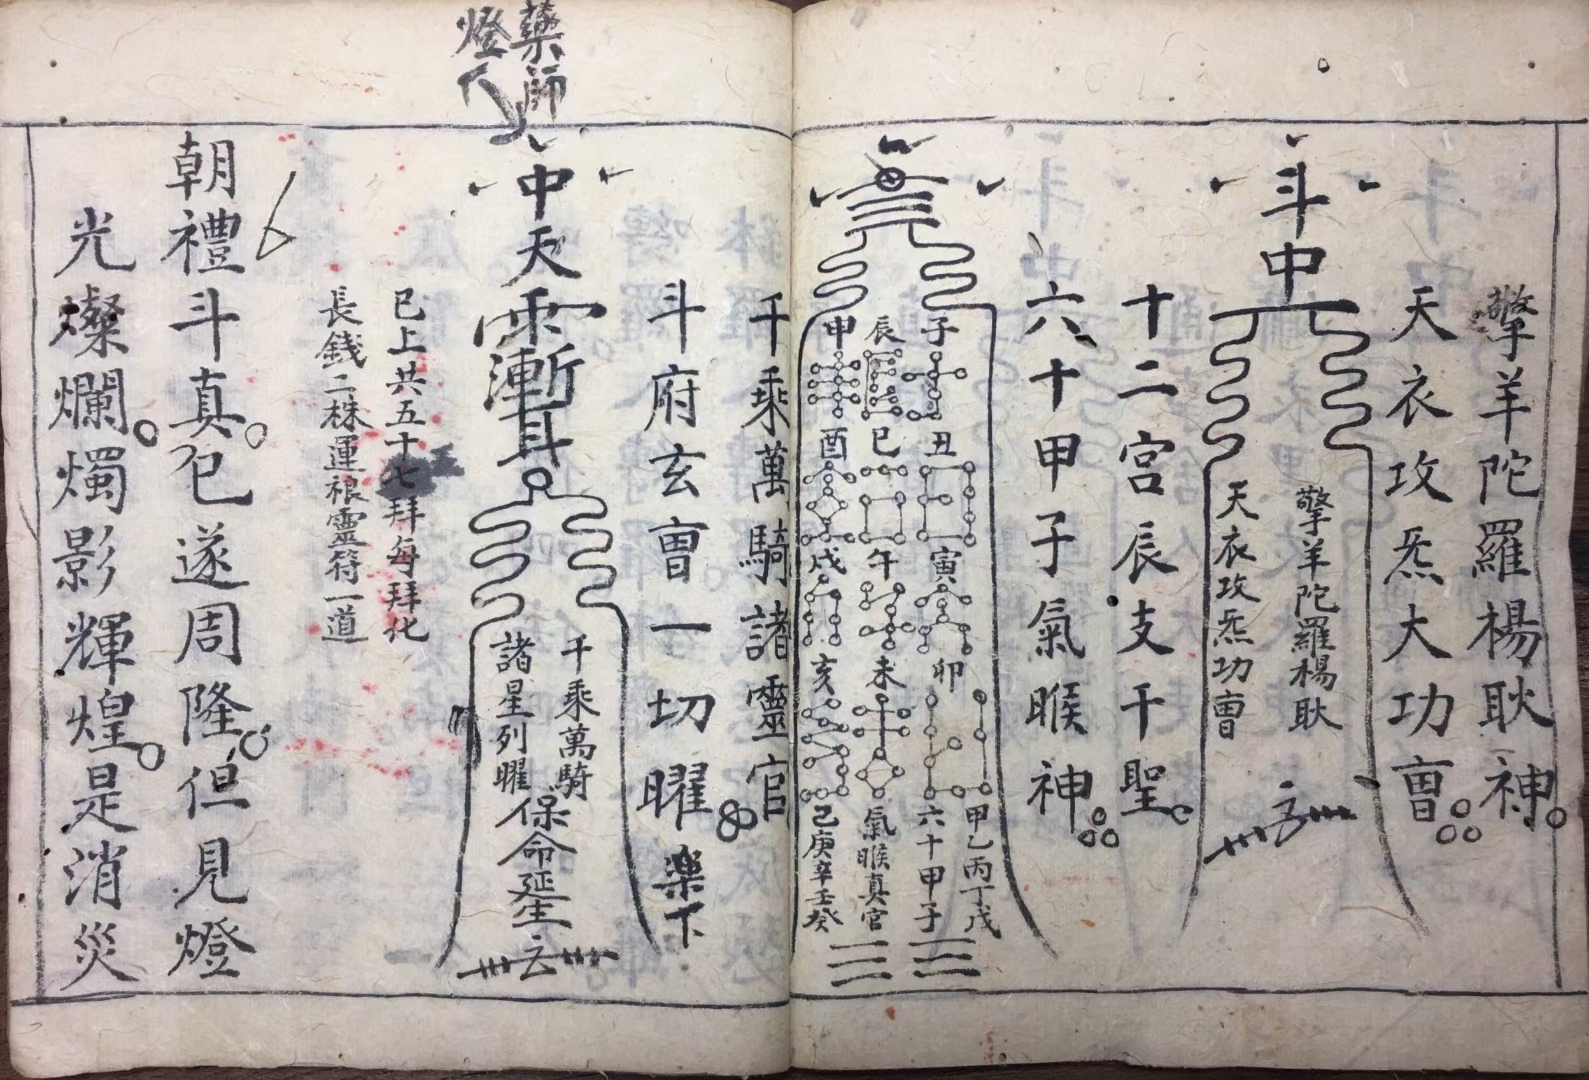 擎羊陀羅楊耿神
天衣攻炁大功曺
斗中
擎羊陀羅楊耿
天衣攻炁功曺
十二宮辰支干聖
六十甲子氣睺神
子
丑
寅
卯
甲乙丙丁戊
六十甲子
辰
巳
午
未
氣睺真官
申
酉
戌
亥
己庚辛壬癸
千乘萬騎諸靈官
斗府玄曺一切曜
樂下
藥師
燈
中天
千乘萬騎
諸星列曜
保命延生
已上共五十七拜每拜化
長錢二株運祿靈符一道
朝禮斗真已遂周隆但見燈
光燦爛燭影輝煌是消災